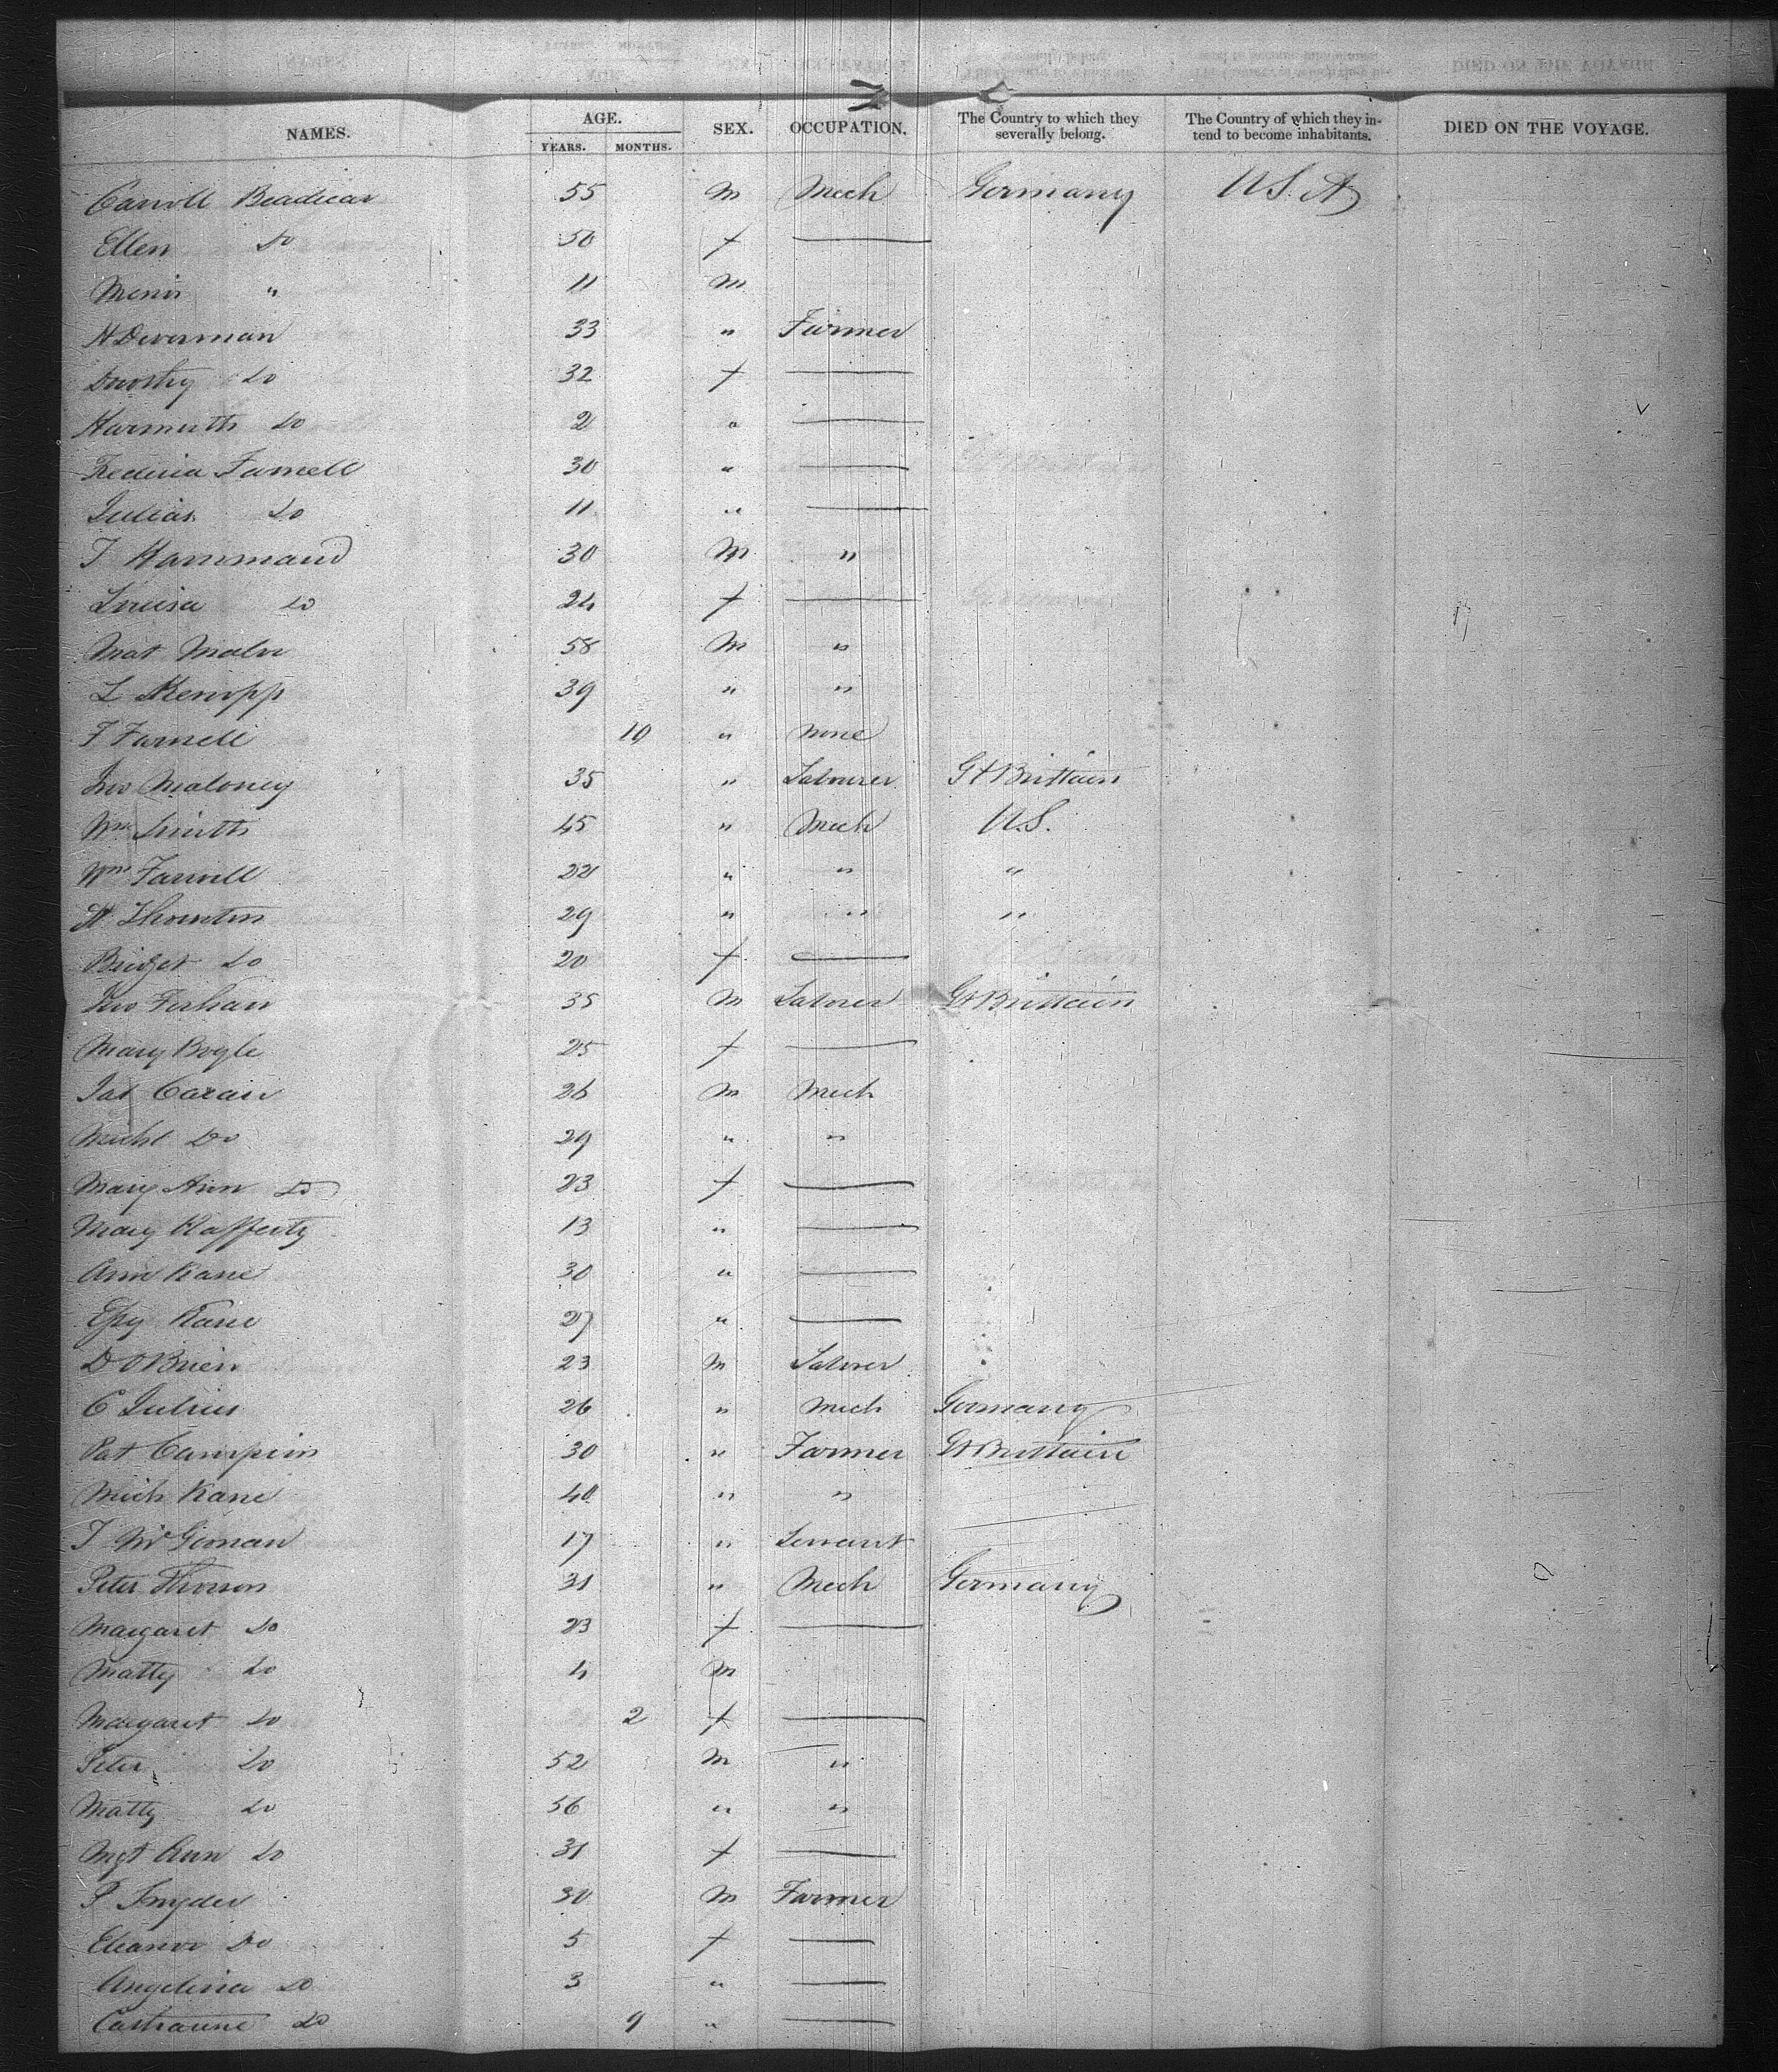 2
NAMES. AGE. SEX. OCCUPATION. The Country to which they severally belong. The Country of which they in- tend to become inhabitants. DIED ON THE VOYAGE.
YEARS. MONTHS.
Carroll 55 M Mech Germany U.S.A
Ellen Do 50 f
11 M
H Deverman 33 " Farmer
Do 32 f
Do 2 "
Farnell 30 "
Julias Do 11 "
T Hammand 30 M "
Louisa Do 24 f
Mat 58 M "
L Kempp 39 " "
F Farnell 10 " none
Jno Maloney 35 " Labourer Gt Brittain
Wm Smith 45 " Mech U.S.
Wm Farrell 22 " " "
H. Thornton 29 " " "
Bridget Do 20 f
Jno 35 M Labrer Gt Brittain
Mary Bogle 25 f
26 M Mech
Michl Do 29 " "
Mary Ann Do 23 f
Mary Rafferty 13 "
Ann Kane 30 "
Kane 27 "
D OBrien 23 M Labrer
C Julius 26 " Mech Germany
Pat Campion 30 " Farmer Gt Brittain
Mich Kane 40 " "
T 17 " Servant
Peter Thorson 31 " Mech Germany
Margaret Do 23 f
Matty Do 4 M
Margaret Do 2 f
Peter Do 52 M "
Matty Do 56 " "
Mgt Ann Do 31 f
P Snyder 30 M Farmer
Eleanor Do 5 f
Angelina Do 3 "
Do 9 "